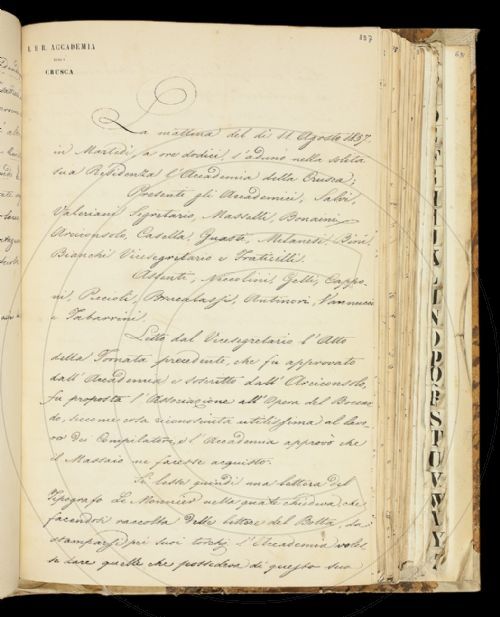 I. E R. ACCADEMIA
DELLA
CRUSCA
137
La mattina del dì 11 Agosto 1857.
in Martedì, a ore dodici, s'adunò nella solita
sua Residenza l'Accademia della Crusca;
Presente gli Accademici, Salvi,
Valeriani Segretario, Masselli, Bonaini,
Arciconsolo, Casella, Guasti, Milanesi, Bini,
Bianchi Vicesegretario e Fraticelli.
Assenti, Niccolini, Gelli, Cappo-
ni, Piccioli, Brucalassi, Antinori, Vannucci
e Tabarrini.
Letto dal Vicesegretario l'Atto
della Tornata precedente, che fu approvato
dall'Accademia e soscritto dall'Arciconsolo,
fu proposta l'Associazione all'Opera del Bocca-
do, siccome cosa riconosciuta utilissima al lavo-
ro dei Compilatori, e l'Accademia approvò che
il Massaio ne facesse acquisto.
Si lesse quindi una lettera del
Tipografo Le Monnier nella quale chiedeva, che
facendosi raccolta delle lettere del Botta, da
stamparsi pei suoi torchj, l'Accademia voles-
se dare quelle che possedeva di questo suo